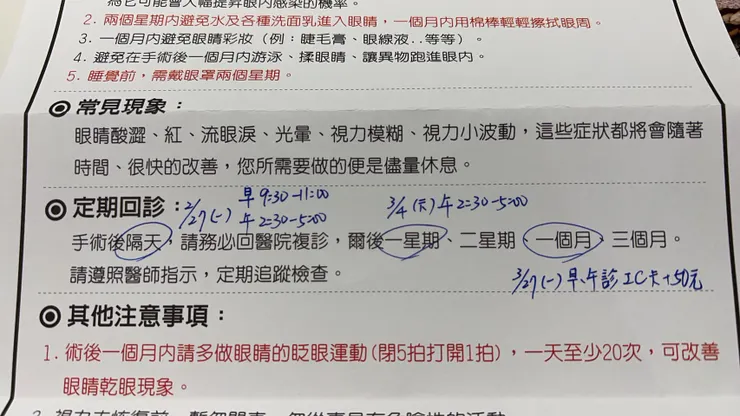 為它可能會大幅提昇眼內感染的機率。
2. 兩個星期內避免水及各種洗面乳進入眼睛，一個月內用棉棒輕輕擦拭眼周。
3. 一個月內避免眼睛彩妝（例：睫毛膏、眼線液..等等）。
4. 避免在手術後一個月內游泳、揉眼睛、讓異物跑進眼內。
5. 睡覺前，需戴眼罩兩個星期。
◉ 常見現象：
眼睛酸澀、紅、流眼淚、光暈、視力模糊、視力小波動，這些症狀都將會隨著
時間、很快的改善，您所需要做的便是儘量休息。
◉ 定期回診： 2/27(一) 早9:30-11:00 午2:30-5:00 3/4(六)午2:30-5:00
手術後隔天，請務必回醫院複診，爾後一星期、二星期、一個月、三個月。
請遵照醫師指示，定期追蹤檢查。
3/27(一)早、午診 IC卡+50元
◉ 其他注意事項：
1. 術後一個月內請多做眼睛的眨眼運動(閉5拍打開1拍)，一天至少20次，可改善
眼睛乾眼現象。